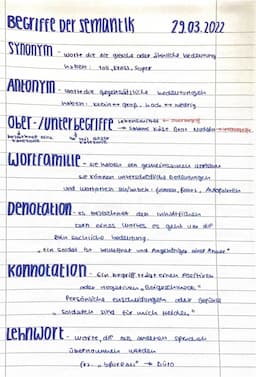 Begriffe der Semantik 29.03.2022
Synonym - Worte die die gleiche oder ähnliche Bedeutung
haben: toll, krass, super
Antonym - Worte die gegensätzliche Bedeutungen
haben: klein ↔ groß, hoch ↔ niedrig
Ober-/Unterbegriffe Lebensmittel ← Oberbegriff
→ Salami Käse Brot Nudeln → Unterbegriffe
bezeichnet eine
Kategorie
Wortfamilie - sie haben den gemeinsamen Wortstamm
sie können unterschiedliche Bedeutungen
und Wortarten
Denotation - es bezeichnet den
eines Wortes es geht um die
rein sachliche Bedeutung.
"Ein Soldat ist und Angehöriger einer Armee"
Konnotation - Ein Begriff trägt einen positiven
oder negativen "Beigeschmack"
Persönliche Entscheidungen oder Gefühle
"Soldaten sind für mich Helden"
Lehnwort - Worte, die aus anderen Sprachen
übernommen werden
frz. "bureau" → Büro